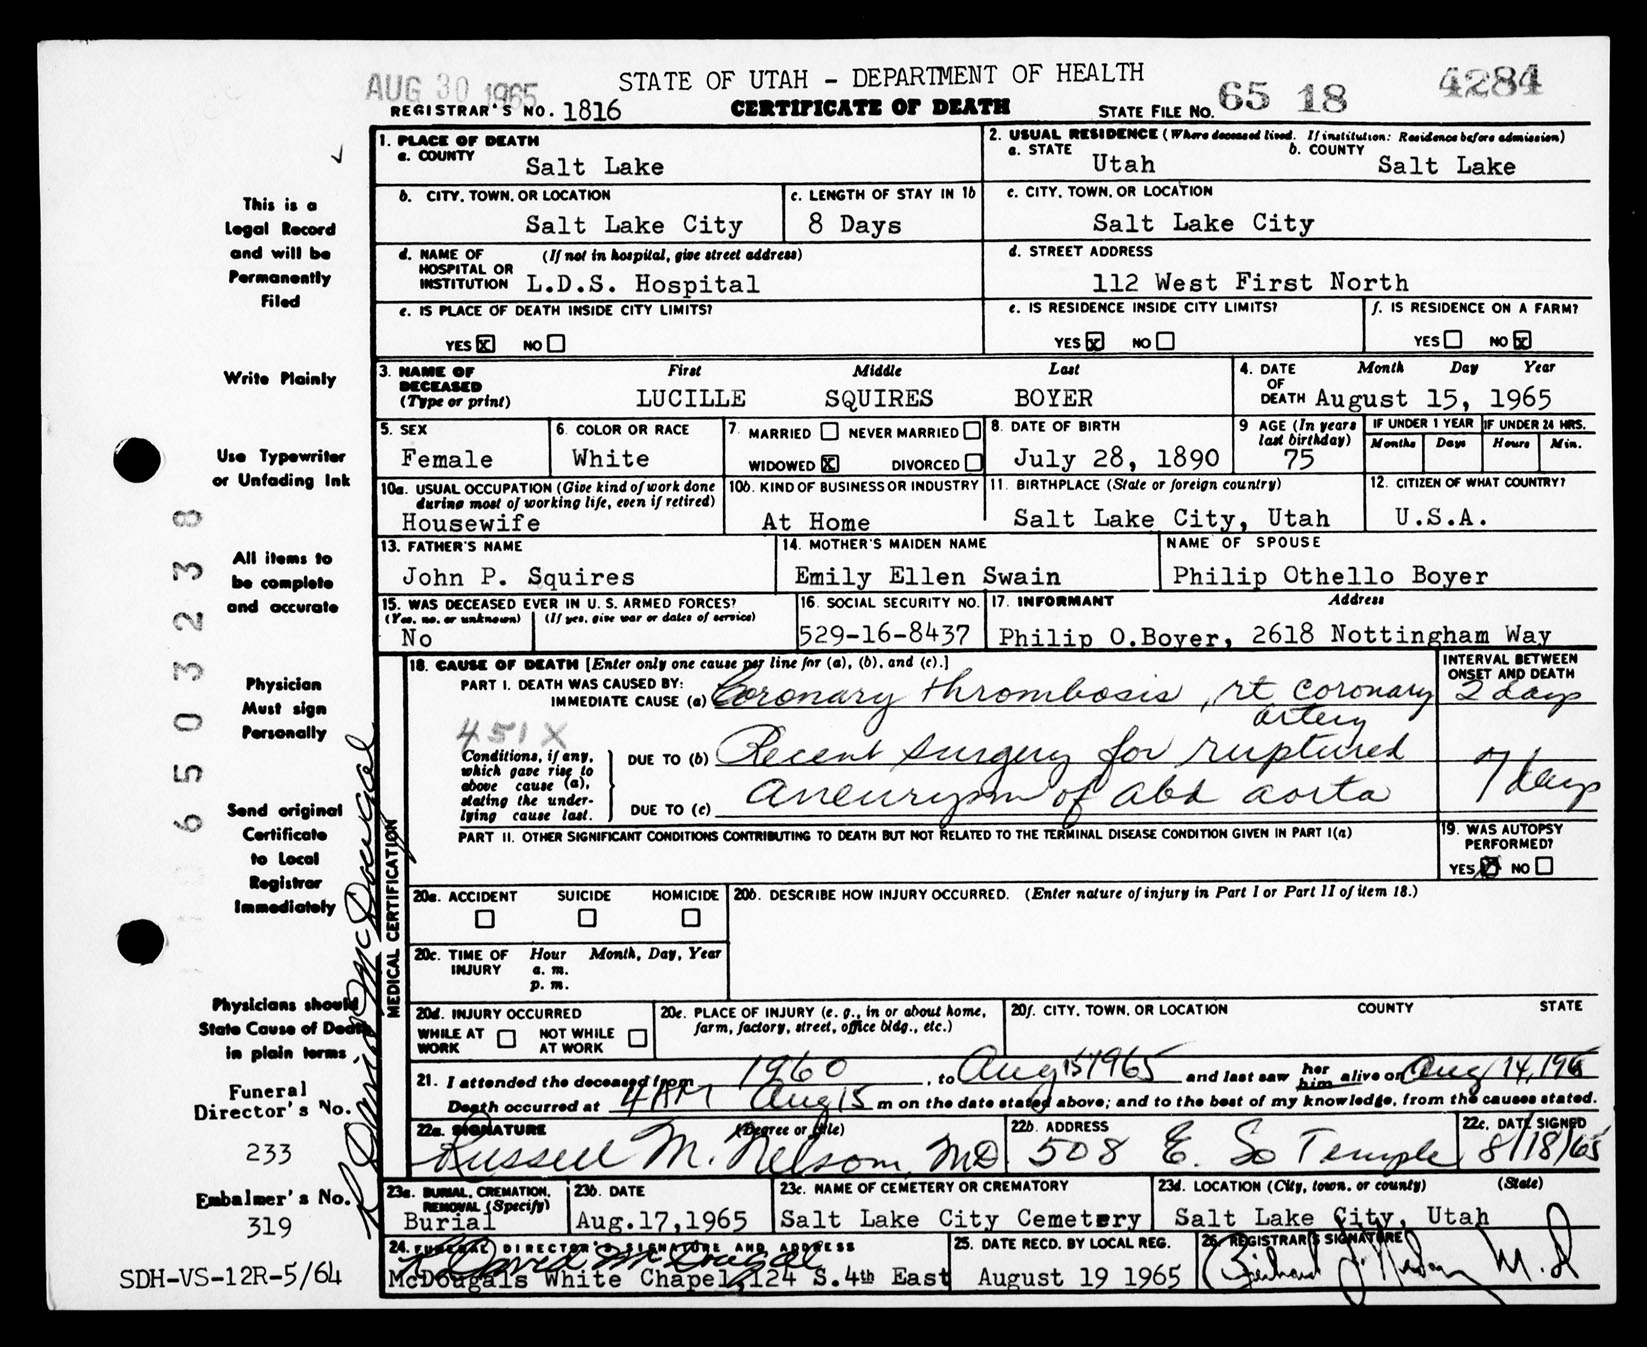 AUG 30 1965
STATE OF UTAH - DEPARTMENT OF HEALTH
65 18 4284
REGISTRAR'S NO. 1816 CERTIFICATE OF DEATH STATE FILE NO.
1. PLACE OF DEATH
a. COUNTY
Salt Lake
2. USUAL RESIDENCE (Where deceased lived. If institution: Residence before admission)
a. STATE b. COUNTY
Utah Salt Lake
b. CITY, TOWN, OR LOCATION
Salt Lake City
c. LENGTH OF STAY IN 1b
8 Days
c. CITY, TOWN, OR LOCATION
Salt Lake City
d. NAME OF (If not in hospital, give street address)
HOSPITAL OR
INSTITUTION L.D.S. Hospital
d. STREET ADDRESS
112 West First North
e. IS PLACE OF DEATH INSIDE CITY LIMITS?
YES X NO
e. IS RESIDENCE INSIDE CITY LIMITS?
YES X NO
f. IS RESIDENCE ON A FARM?
YES NO X
3. NAME OF First Middle Last
DECEASED
(Type or print) LUCILLE SQUIRES BOYER
4. DATE Month Day Year
OF
DEATH August 15, 1965
5. SEX
Female
6. COLOR OR RACE
White
7. MARRIED NEVER MARRIED
WIDOWED X DIVORCED
8. DATE OF BIRTH
July 28, 1890
9 AGE (In years
last birthday)
75
IF UNDER 1 YEAR
Months Days
IF UNDER 24 HRS.
Hours Min.
10a. USUAL OCCUPATION (Give kind of work done
during most of working life, even if retired)
Housewife
10b. KIND OF BUSINESS OR INDUSTRY
At Home
11. BIRTHPLACE (State or foreign country)
Salt Lake City, Utah
12. CITIZEN OF WHAT COUNTRY?
U.S.A.
13. FATHER'S NAME
John P. Squires
14. MOTHER'S MAIDEN NAME
Emily Ellen Swain
NAME OF SPOUSE
Philip Othello Boyer
15. WAS DECEASED EVER IN U. S. ARMED FORCES?
(Yes, no, or unknown) (If yes, give war or dates of service)
No
16. SOCIAL SECURITY NO.
529-16-8437
17. INFORMANT Address
Philip O.Boyer, 2618 Nottingham Way
MEDICAL CERTIFICATION
18. CAUSE OF DEATH [Enter only one cause per line for (a), (b), and (c).]
INTERVAL BETWEEN
ONSET AND DEATH
PART I. DEATH WAS CAUSED BY:
IMMEDIATE CAUSE (a) Coronary thrombosis, rt coronary
artery
2 days
451X
Conditions, if any,
which gave rise to
above cause (a),
stating the under-
lying cause last.
DUE TO (b) Recent surgery for ruptured
DUE TO (c) aneurysm of abd aorta
7 days
PART II. OTHER SIGNIFICANT CONDITIONS CONTRIBUTING TO DEATH BUT NOT RELATED TO THE TERMINAL DISEASE CONDITION GIVEN IN PART I(a)
19. WAS AUTOPSY
PERFORMED?
YES X NO
20a. ACCIDENT SUICIDE HOMICIDE
20b. DESCRIBE HOW INJURY OCCURRED. (Enter nature of injury in Part I or Part II of item 18.)
20c. TIME OF Hour Month, Day, Year
INJURY a. m.
p. m.
20d. INJURY OCCURRED
WHILE AT NOT WHILE
WORK AT WORK
20e. PLACE OF INJURY (e. g., in or about home,
farm, factory, street, office bldg., etc.)
20f. CITY, TOWN, OR LOCATION COUNTY STATE
21. I attended the deceased from 1960, to Aug 15 1965 and last saw her him alive on Aug 14, 196
Death occurred at 4 AM Aug 15 m on the date stated above; and to the best of my knowledge, from the causes stated.
22a. SIGNATURE (Degree or title)
Russell M. Nelson, MD
22b. ADDRESS
508 E. So Temple
22c. DATE SIGNED
8/18/65
23a. BURIAL, CREMATION,
REMOVAL (Specify)
Burial
23b. DATE
Aug.17,1965
23c. NAME OF CEMETERY OR CREMATORY
Salt Lake City Cemetery
23d. LOCATION (City, town, or county) (State)
Salt Lake City, Utah
24. FUNERAL DIRECTOR'S SIGNATURE AND ADDRESS
R David McDougal
McDougals White Chapel,124 S.4th East
25. DATE RECD. BY LOCAL REG.
August 19 1965
26. REGISTRAR'S SIGNATURE
M.D
This is a
Legal Record
and will be
Permanently
Filed
Write Plainly
Use Typewriter
or Unfading Ink
All items to
be complete
and accurate
Physician
Must sign
Personally
Send original
Certificate
to Local
Registrar
Immediately
Physicians should
State Cause of Death
in plain terms
Funeral
Director's No.
233
Embalmer's No.
319
SDH-VS-12R-5/64
6503238
R David McDougal